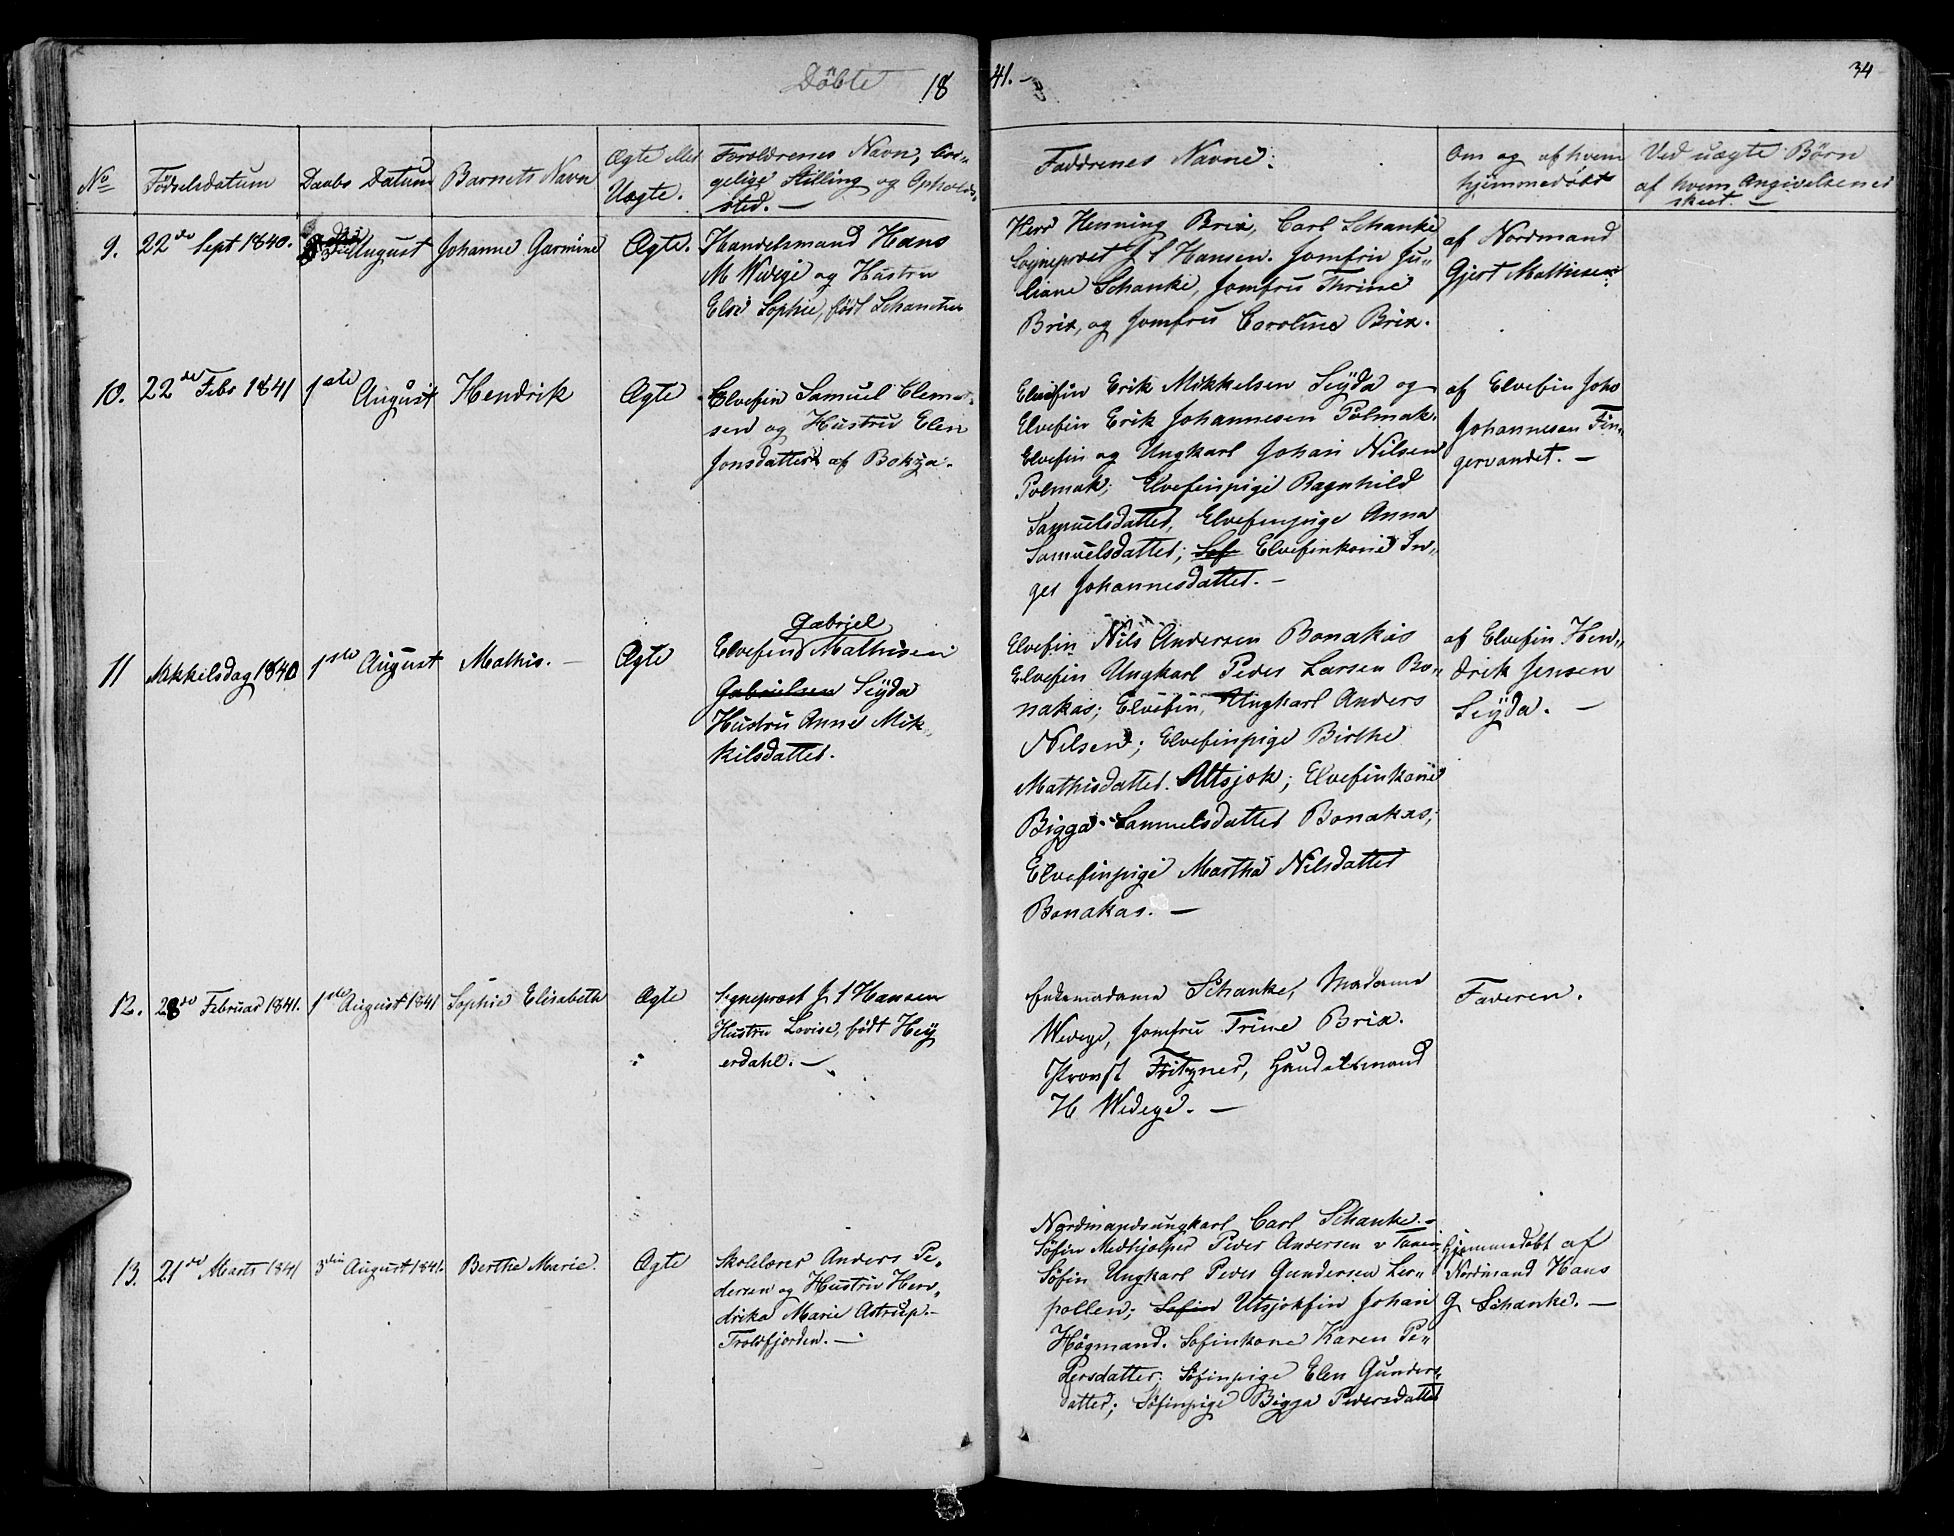 Döbte 1841. 34
No
Födselsdatum
Daabs Datum
Barnets Navn
Ægte eller
Uægte.
Forældrenes Navn, Bor-
gelige Stilling og Opholds-
sted. —
Faddrenes Navne.
Om og af hvem
hjemmedöbt
Ved uægte Börn
af hvem Angivelsen er
skeet. —
9. 22de Sept 1840. August Johanne Garmine Ægte.
Handelsmand Hans
M Wedege og Hustru
Else Sophie, födt Schancke
Herr Henning Brix, Carl Schanke
Sogneprest J S Hansen. Jomfru Ju-
liane Schanke, Jomfru Thrine
Brix, og Jomfru Caroline Brix.
af Nordmand
Gjert Mathisen
10. 22de Febr 1841 1ste August Hendrik Ægte
Elvefin Samuel Clemet-
sen og Hustru Elen
Jonsdatter af Bokza.
Elvefin Erik Mikkelsen Seyda og
Elvefin Erik Johannesen Polmak.
Elvefin og Ungkarl Johan Nilsen
Polmak; Elvefinpige Ragnhild
Samuelsdatter, Elvefinpige Anna
Samuelsdatter; Sef Elvefinkone In-
ger Johannesdatter. —
af Elvefin Johs
Johannesen Fin-
gervandet. —
11 Mikkilsdag 1840 1ste August Mathis. — Ægte
Gabriel
Elvefin Mathisen
Gabrielsen Seyda
Hustru Anne Mik-
kilsdatter.
Elvefin Nils Andersen Bonakas
Elvefin Ungkarl Peder Larsen Bo-
nakas; Elvefin, Ungkarl Anders
Nilsen; Elvefinpige Birthe
Mathisdatter. Utsjok; Elvefinkone
Bigga Samuelsdatter Bonakas;
Elvefinpige Martha Nilsdatter
Bonakas. —
af Elvefin Hen-
drik Jensen
Seyda. —
12. 28de Februar 1841. 1ste August 1841 Sophie Elisabeth Ægte
Sogneprest J S Hansen
Hustru Lovise, födt Hey
erdahl. —
Enkemadame Schanke, Madame
Wedege, Jomfru Trine Brix.
Provst Fritzner, Handelsmand
H. Wedege. —
Faveren.
13. 21de Marts 1841 3die August 1841. Bertha Marie. Ægte
Skolelærer Anders Pe-
dersen og Hustru Hen-
drika Marie Astrup.
Troldfjorden. —
Nordmandsungkarl Carl Schanke. —
Söfin Medhjelper Peder Andersen v Tanen
Söfin Ungkarl Peder Gundersen Ler-
pollen; Sofin Utsjokfin Johan
Högmand. Sofinkone Karen Pe-
dersdatter; Söfinpige Elen Gunders-
datter; Söfinpige Bigga Pedersdatter
Hjemmedöbt af
Nordmand Hans
G Schanke. —